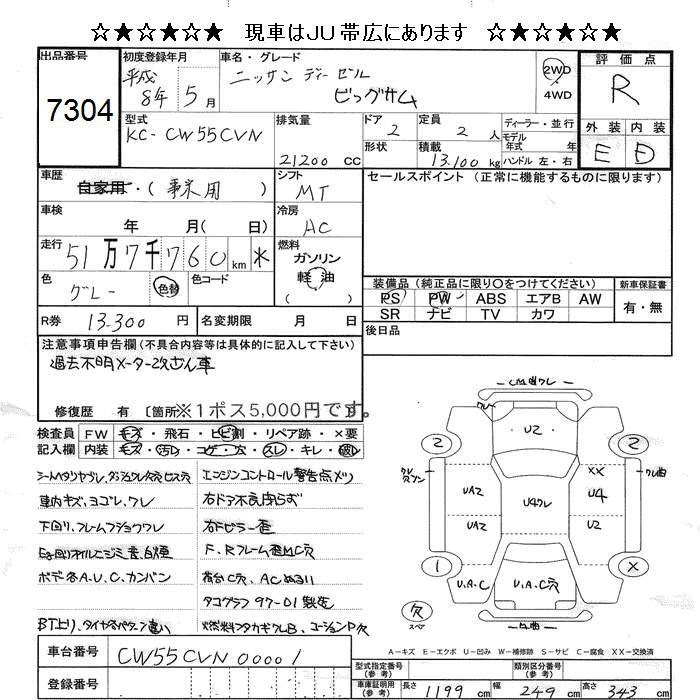 ☆★☆★☆★ 現車はJU帯広にあります ☆★☆★☆★
出品番号 7304
初度登録年月 平成 8年 5月
車名・グレード ニッサンディーゼル ビッグサム
2WD ・ 4WD
評価点 R
外装 内装
E D
型式 KC- CW55CVN
排気量 21200 cc
ドア 2
定員 2 人
形状
積載 13.100 kg
ディーラー・並行
モデル 年式 年
ハンドル 左・右
車歴 自家用・(事業用)
シフト MT
セールスポイント (正常に機能するものに限ります)
車検 年 月( 日)
冷房 AC
走行 51万7千760km *
燃料 ガソリン 軽油 ( )
色 グレー 色替 色コード
装備品(純正品に限り○をつけてください)
PS PW ABS エアB AW
SR ナビ TV カワ
新車保証書 有・無
R券 13-300 円
名変期限 月 日
後日品
注意事項申告欄(不具合内容等は具体的に記入して下さい)
過去不明メーター改ざん車
修復歴 有 [箇所 ※1ポス5,000円です。
検査員記入欄
FW キズ・飛石・ヒビ割・リペア跡・×要
内装 キズ・汚レ・コゲ・穴・スレ・キレ・破レ
エンジンコントロール警告点メツ
車内キズ、ヨゴレ、ワレ
右ドア不良閉らず
下回り、フレームフショクワレ
右Fピラー歪
Eg回りオイルニジミ、音、白煙
F、Rフレーム歪MC穴
ボデー各A、U、C、カンバン
荷台C穴、ACぬるい
タコグラフ97-01製造
BT上り、タイヤ各パターン違い
車台番号 CW55CVN00001
登録番号
2 2 1 ×
U2
UA2
UA2
U4ワレ
××
U4
U2
U、A、C
U、A、C穴
ワレ
欠 スペア
A-キズ E-エクボ U-凹み W-補修跡 S-サビ C-腐食 XX-交換済
型式指定番号(参考)
類別区分番号(参考)
車庫証明用(参考) 長さ 1199 cm 幅 249 cm 高さ 343 cm